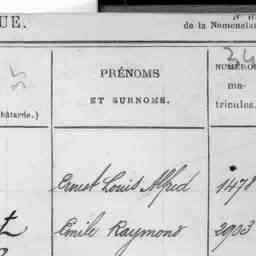 UE.
de la Nomencla
34
PRÉNOMS
ET SURNOMS.
NUMÉRO
ma-
tricules.
hâtarde.)
Ernest Louis Alfred 1478
Emile Raymond 2903